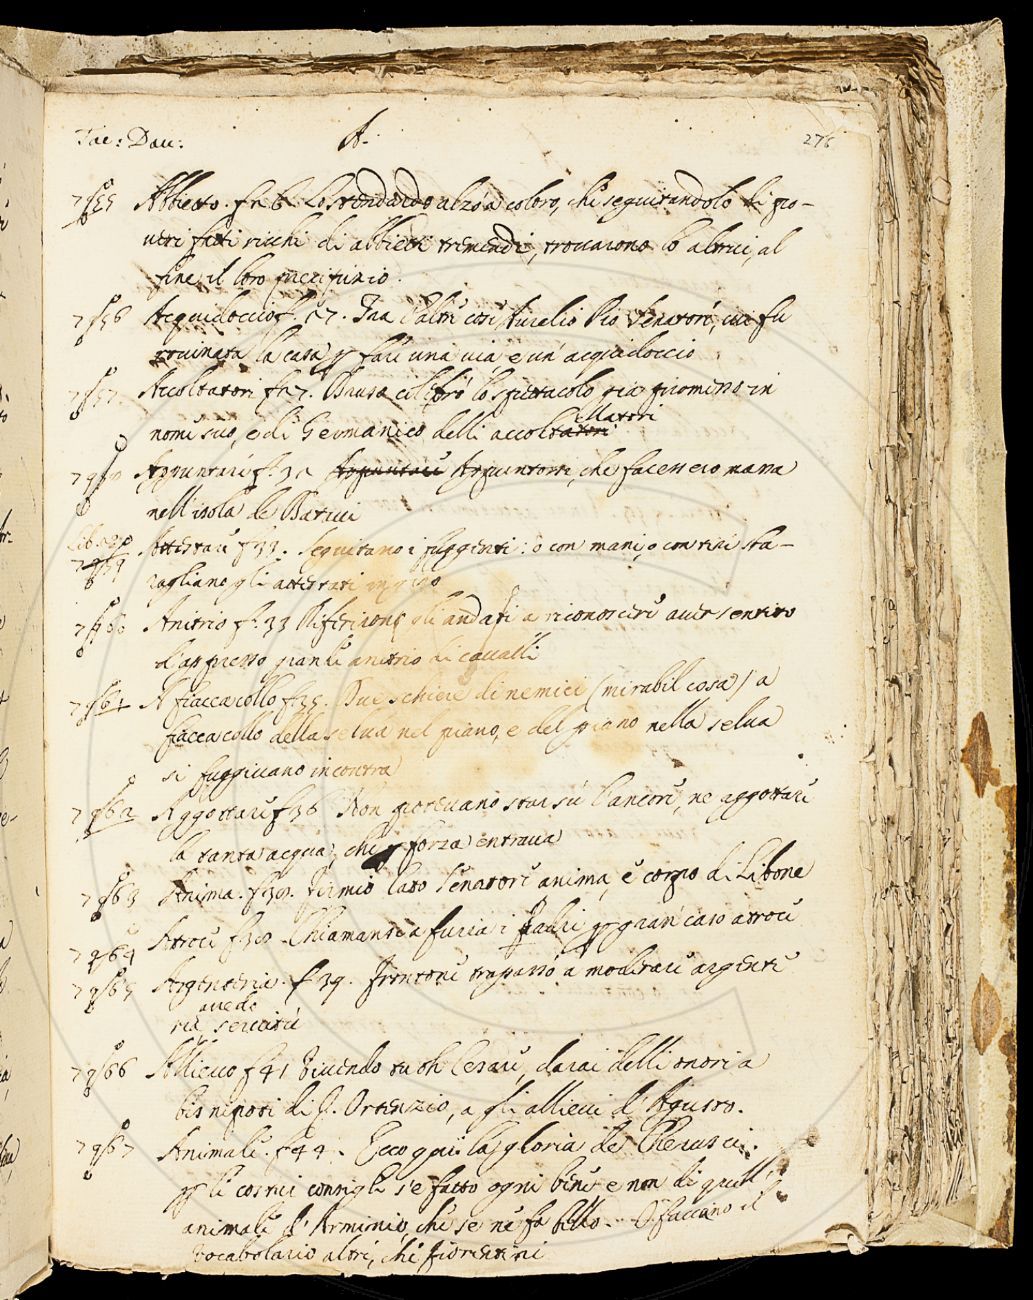 Tac: Dau: A. 276
7955 Abbietto. f. 6. Lo stendardo alzò a coloro, che seguitandolo di po-
ueri fatti ricchi di abbietti tremendi, trouarono lo altrui, al
fine il loro precipizio.
7956 Acquidoccio f. 27. Tra l'altri così Aurelio Pio Senatore, cui fu
rouinata la casa per fare una uia e un' acquidoccio
7957 Accoltatori f. 27. Druso celebrò lo spettacolo
nome suo, e di Germanico delli accoltellatori
7958 Appuntare f. 31 che facessero massa
nell'isola de Bataui
7959 Atterrare f. 33. Seguitano i fuggenti: o con mani, o con tiri sba-
ragliano gli atterrati
7960 Anitrio f. 33 Riferirono gli andati a riconoscere auer sentito
d'appresso grande anitrio di caualli
7961 A fiaccacollo f. 35. Due schiere di nemici (mirabil cosa) a
fiaccacollo della selua nel piano, e del piano nella selua
si fuggiuano incontra
7962 Aggottare f. 36 Non poteuano star sù l'ancore, ne aggottare
la tanta acqua, che per forza entraua
7963 Anima. f. 38. Firmio Cato Senatore anima, e corpo di Libone
7964 Atroce f. 38 Chiamansi a furia i Padri per gran' caso atroce
7965 Argenteria. f. 39. Frontone trapassò a moderare argente
ria, arredo seruitù
7966 Allieuo f. 41 Viuendo tu oh Cesare, darai delli onori a
bisnipoti di Q. Ortenzio, a gli allieui d'Agusto.
7967 Animale. f. 44. Ecco qui la gloria de Cherusci.
per li costui consigli s'è fatto ogni bene e non di quell'
animale d'Arminio, che se ne fa bello. O facciano il
Vocabolario altri, che Fiorentini